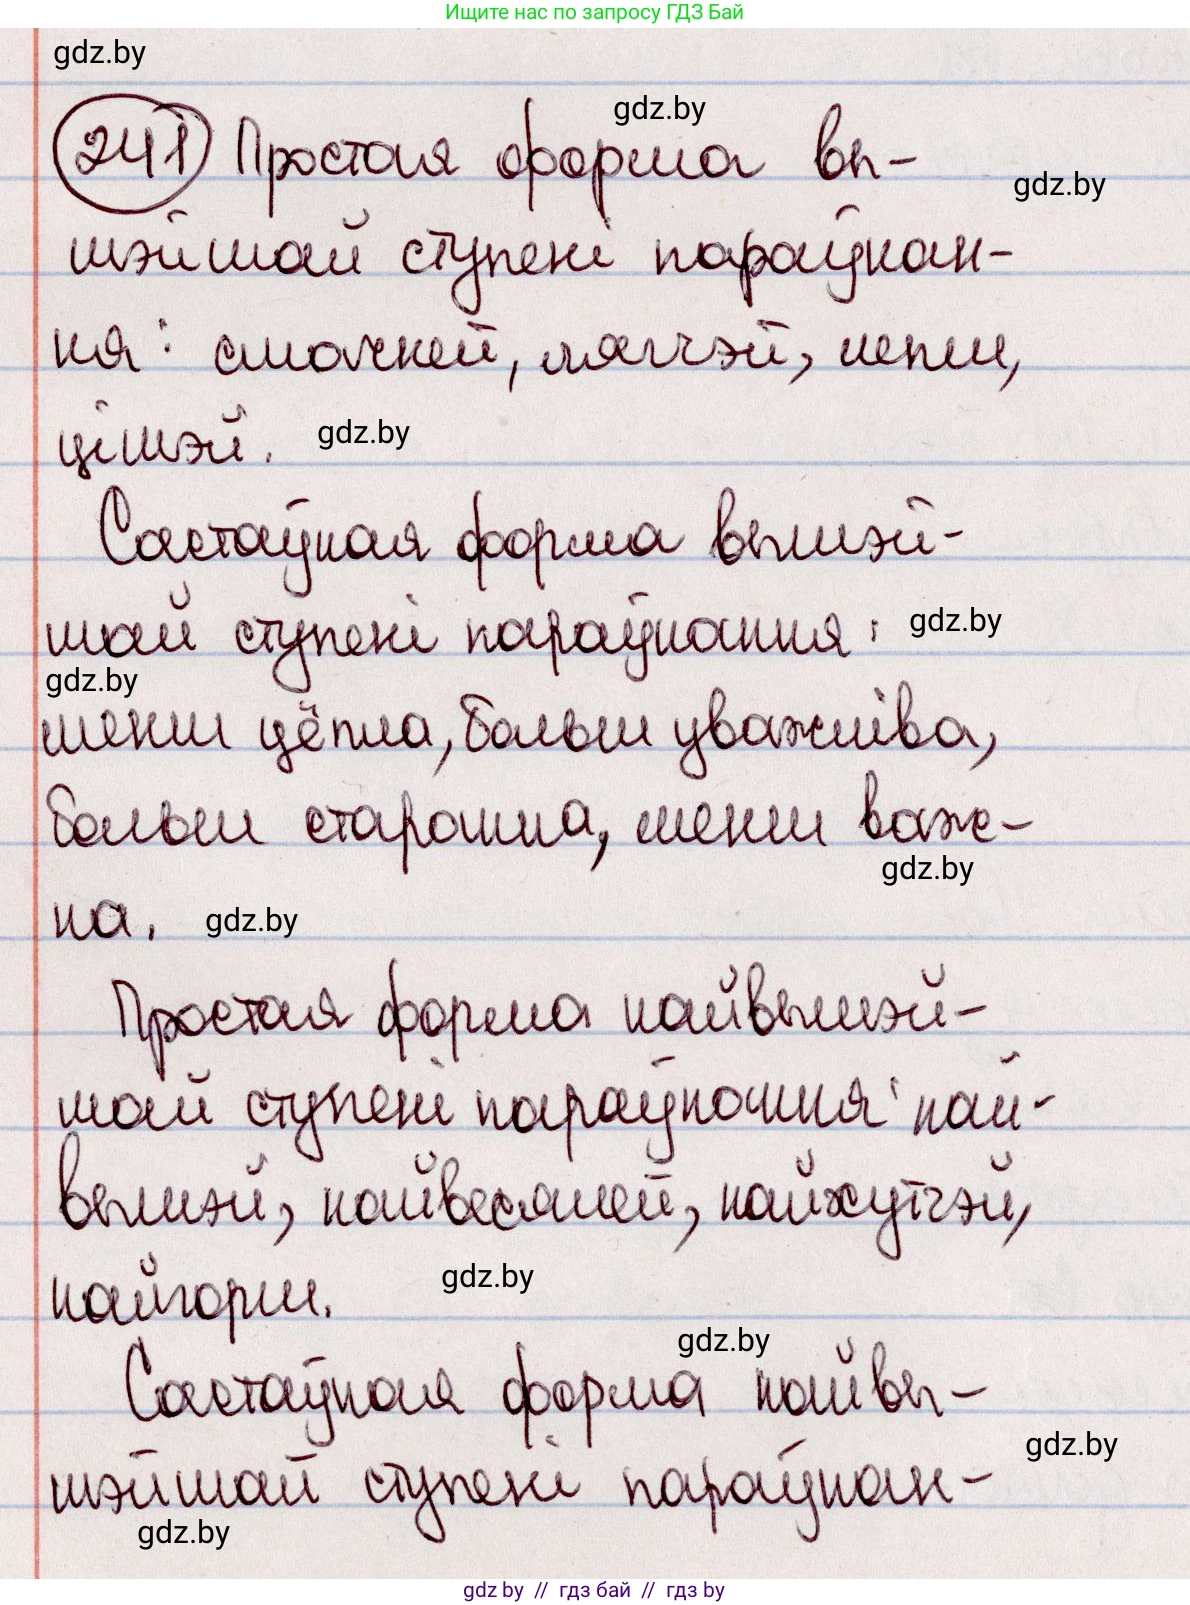 Ищите нас по запросу ГДЗ Бай
gdz.by
gdz.by
241 Простая форма вы-
gdz.by
шэйшай ступені параўнан-
ня: смачней, мягчэй, лепш,
цішэй. gdz.by
Састаўная форма вышэй-
шай ступені параўнання:
gdz.by
gdz.by
менш цёпла, больш уважліва,
больш старанна, менш важ-
gdz.by
на. gdz.by
Простая форма найвышэй-
шай ступені параўнання: най-
вышэй, найвесялей, найхутчэй,
найгорш.
gdz.by
gdz.by
Састаўная форма найвы-
gdz.by
шэйшай ступені параўнан-
gdz.by
gdz.by // гдз бай // гдз by